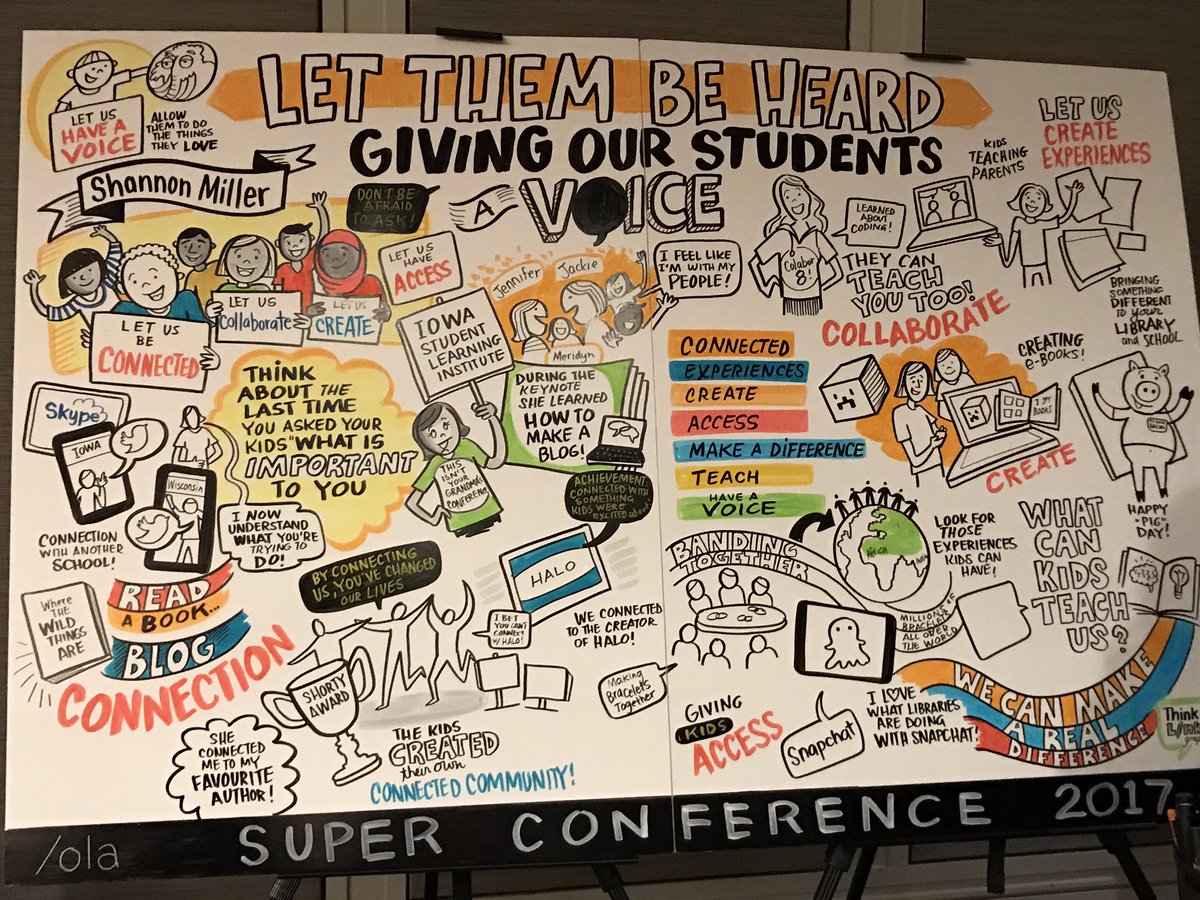 LET US
HAVE A
VOICE
ALLOW
THEM TO DO
THE THINGS
THEY LOVE
LET THEM BE HEARD
GIVING OUR STUDENTS
A VOICE
Shannon Miller
DON'T BE
AFRAID
TO ASK!
LET US
HAVE
ACCESS
LET US
BE
CONNECTED
LET US
Collaborate
LET US
CREATE
IOWA
STUDENT
LEARNING
INSTITUTE
Jennifer
Jackie
Meridyn
I FEEL LIKE
I'M WITH MY
PEOPLE!
Colabor
8
LEARNED
ABOUT
CODING!
THEY CAN
TEACH
YOU TOO!
COLLABORATE
KIDS
TEACHING
PARENTS
LET US
CREATE
EXPERIENCES
BRINGING
SOMETHING
DIFFERENT
to your
LIBRARY
and SCHOOL
Skype
IOWA
Wisconsin
CONNECTION
WITH ANOTHER
SCHOOL!
THINK
ABOUT THE
LAST TIME
YOU ASKED YOUR
KIDS "WHAT IS
IMPORTANT
TO YOU
I NOW
UNDERSTAND
WHAT YOU'RE
TRYING TO
DO!
THIS
ISN'T YOUR
GRANDMAS
CONFERENCE
DURING THE
KEYNOTE
SHE LEARNED
HOW TO
MAKE A
BLOG!
ACHIEVEMENT:
CONNECTED WITH
SOMETHING
KIDS WERE
EXCITED about
CONNECTED
EXPERIENCES
CREATE
ACCESS
MAKE A DIFFERENCE
TEACH
HAVE A
VOICE
CREATING
e-BOOKS!
I SPY
BOOKS
CREATE
HAPPY
"PIG"
DAY!
WHERE
THE
WILD
THINGS
ARE
READ
A BOOK...
BLOG
CONNECTION
BY CONNECTING
US, YOU'VE CHANGED
OUR LIVES
HALO
I BET
YOU CAN'T
CONNECT
w/HALO!
WE CONNECTED
TO THE CREATOR
OF HALO!
SHORTY
AWARD
SHE
CONNECTED
ME TO MY
FAVOURITE
AUTHOR!
THE KIDS
CREATED
their own
CONNECTED COMMUNITY!
BANDING
TOGETHER
Africa
LOOK FOR
THOSE
EXPERIENCES
KIDS CAN
HAVE!
MILLIONS OF
BRACELETS
ALL OVER
THE WORLD
Making
Bracelets
Together
GIVING
KIDS
ACCESS
Snapchat
I LOVE
WHAT LIBRARIES
ARE DOING
WITH SNAPCHAT!
WHAT
CAN
KIDS
TEACH
US?
WE CAN MAKE
A REAL
DIFFERENCE
Think
Link
/ola SUPER CONFERENCE 2017